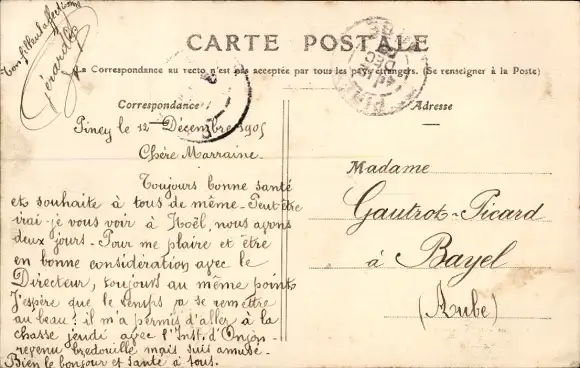 Ton filleul affectionné
Gérard
CARTE POSTALE
La Correspondance au recto n'est pas acceptée par tous les pays étrangers. (Se renseigner à la Poste)
Correspondance
Piney le 12 Décembre 1905
Chère Marraine.
Toujours bonne santé
et souhaite à tous de même - Peut-être
irai-je vous voir à Noël, nous avons
deux jours - Pour me plaire et être
en bonne considération avec le
Directeur, toujours au même point
J'espère que le temps va se remettre
au beau! il m'a permis d'aller à la
chasse jeudi avec l'Inst. d'Onjon -
revenu bredouille mais suis amusé -
Bien le bonjour et santé à tous.
Adresse
Madame
Gautrot-Picard
à Bayel
(Aube)